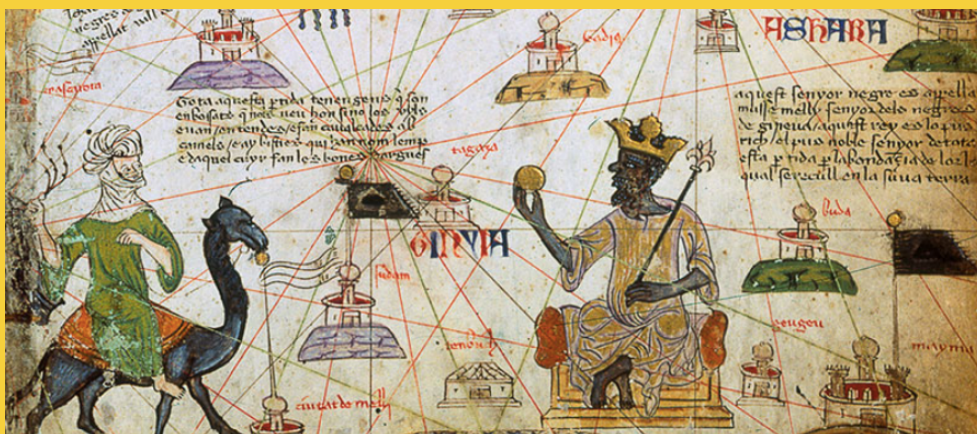 negres de
appellat vill de
ASHARA
Tota aquesta ptida tenen gens q son
enbossats q nols veu hom sino los uyls
e uan en tendes e fan caualcades ab
camels e ay bisties qui han nom lemp
e daquel cuyr fan les bones dargues
aquest senyor negre es appella
musse melly senyor dels negres
de gineua aquest rey es lo pus
rich el pus noble senyor de tota
esta ptida p labondancia de lor
qual se recull en la sua terra
tagaza
buda
GINYIA
sudam
tenbuch
geugeu
mayma
ciutat de melly